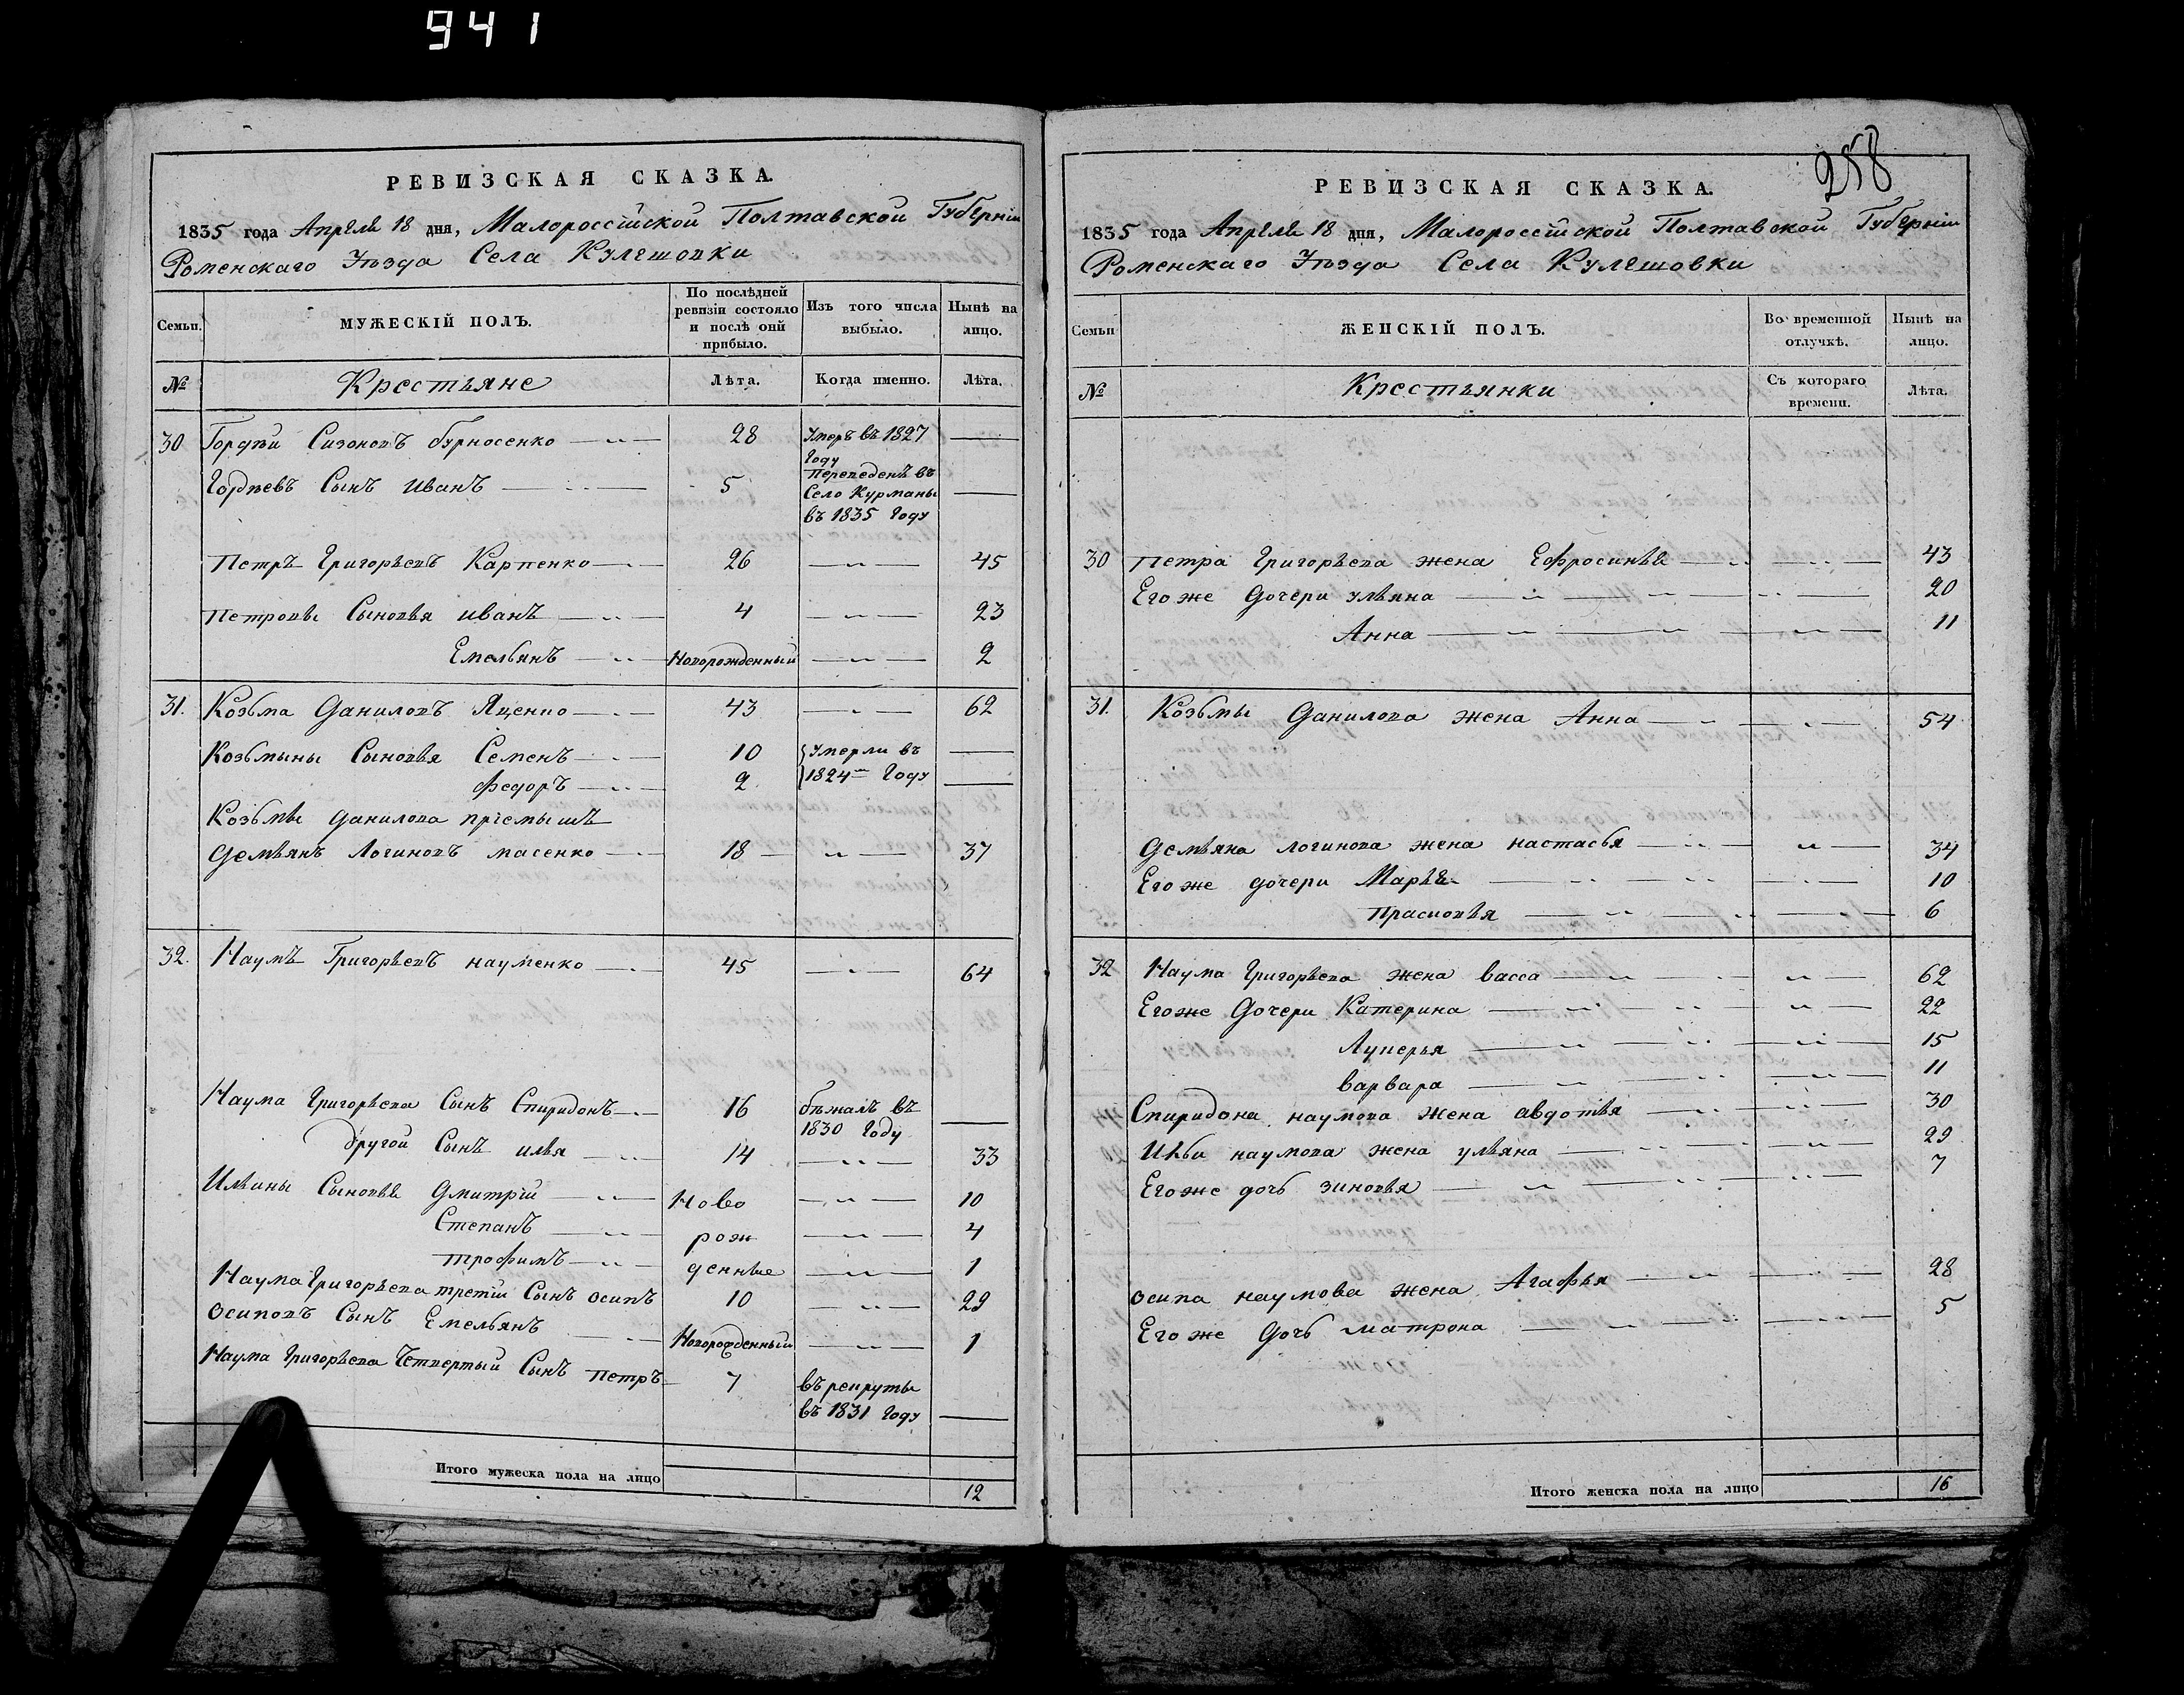 941
РЕВИЗСКАЯ СКАЗКА.
1835 года Апреля 18 дня, Малороссійской Полтавской Губерніи
Роменскаго Уѣзда Села Кулешовки
Семьи.
МУЖЕСКІЙ ПОЛЪ.
По послѣдней ревизіи состояло и послѣ онй прибыло.
Изъ того числа выбыло.
Нынѣ на лицо.
№
Крестьяне
Лѣта.
Когда именно.
Лѣта.
30 Гордѣй Сизоновъ бурносенко 28 Умеръ въ 1827 Году
Гордѣевъ Сынъ Иванъ 5 Переведенъ въ Село Курманы въ 1835 Году
Петръ Григорьевъ Карпенко 26 45
Петровы Сыновья иванъ 4 23
Емельянъ Новорожденный 2
31. Козьма Даниловъ Яценко 43 62
Козьмины Сыновья Семенъ 10 Умерли въ
Федоръ 2 1824м Году
Козьмы Данилова пріемышъ
Демьянъ Логиновъ масенко 18 37
32. Наумъ Григорьевъ науменко 45 64
Наума Григорьева Сынъ Спиридонъ 16 бѣжалъ въ 1830 Году
другой Сынъ илья 14 33
Ильины Сыновья Дмитрій Ново 10
Степанъ рож 4
трофимъ денные 1
Наума Григорьева третій Сынъ осипъ 10 29
осиповъ Сынъ Емельянъ Новорожденный 1
Наума Григорьева Четвертый Сынъ петръ 7 въ рекруты въ 1831 Году
Итого мужеска пола на лицо 12
258
РЕВИЗСКАЯ СКАЗКА.
1835 года Апреля 18 дня, Малороссійской Полтавской Губерніи
Роменскаго Уѣзда Села Кулешовки
Семьи
ЖЕНСКІЙ ПОЛЪ.
Во временной отлучкѣ.
Нынѣ на лицо.
№
Крестьянки
Съ котораго времени.
Лѣта.
30 петра Григорьева жена Ефросинья 43
Его же дочери ульяна 20
Анна 11
31. Козьмы Данилова жена Анна 54
Демьяна логинова жена настасья 34
Его же дочери Марья 10
прасковья 6
32 Наума Григорьева жена васса 62
Его же Дочери Катерина 22
Лукерья 15
варвара 11
Спиридона наумова жена авдотья 30
Ильи наумова жена ульяна 29
Его же дочь зиновья 7
осипа наумова жена Агафья 28
Его же Дочь матрона 5
Итого женска пола на лицо 16